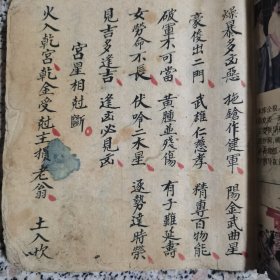 燥暴多凶惡　拖鎗作健軍　陽金武曲星
豪俊出二門　武雄仁慈孝　精專百物能
破軍不可當　黃腫並殘傷　有子難延壽
女勞命不長　伏吟二木星　逐勢達時榮
見吉多逢吉　逢凶必見凶
宮星相尅斷
火入乾宮乾金受尅主損老翁　土入坎